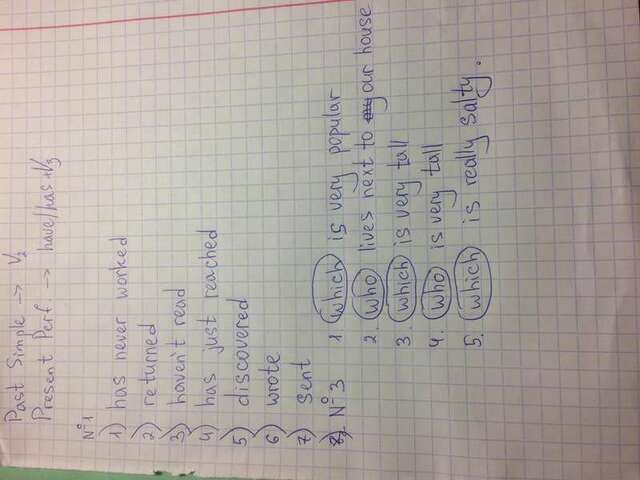 Past Simple → V2
Present Perf. → have/has + V3
№1
1) has never worked
2) returned
3) haven't read
4) has just reached
5) discovered
6) wrote
7) sent
№3 1 which is very popular
2. who lives next to our house
3. which is very tall
4. who is very tall
5. which is really salty.